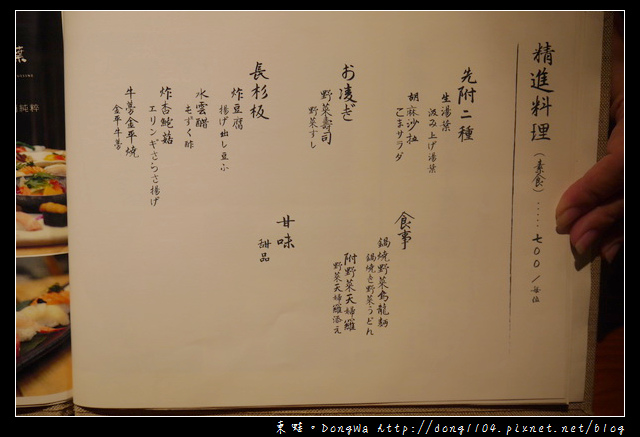 精進料理（素食）‥‥‥七００／每位
先附二種
生湯葉
汲み上げ湯葉
胡麻沙拉
ごまサラダ
お凌ぎ
野菜壽司
野菜すし
長杉板
炸豆腐
揚げ出し豆ふ
水雲醋
もずく酢
炸杏鮑菇
エリンギさつさ揚げ
牛蒡金平燒
金平牛蒡
食事
鍋燒野菜烏龍麵
鍋燒き野菜うどん
附野菜天婦羅
野菜天婦羅添え
甘味
甜品
純粹
東蛙。DongWa http://dong1104.pixnet.net/blog